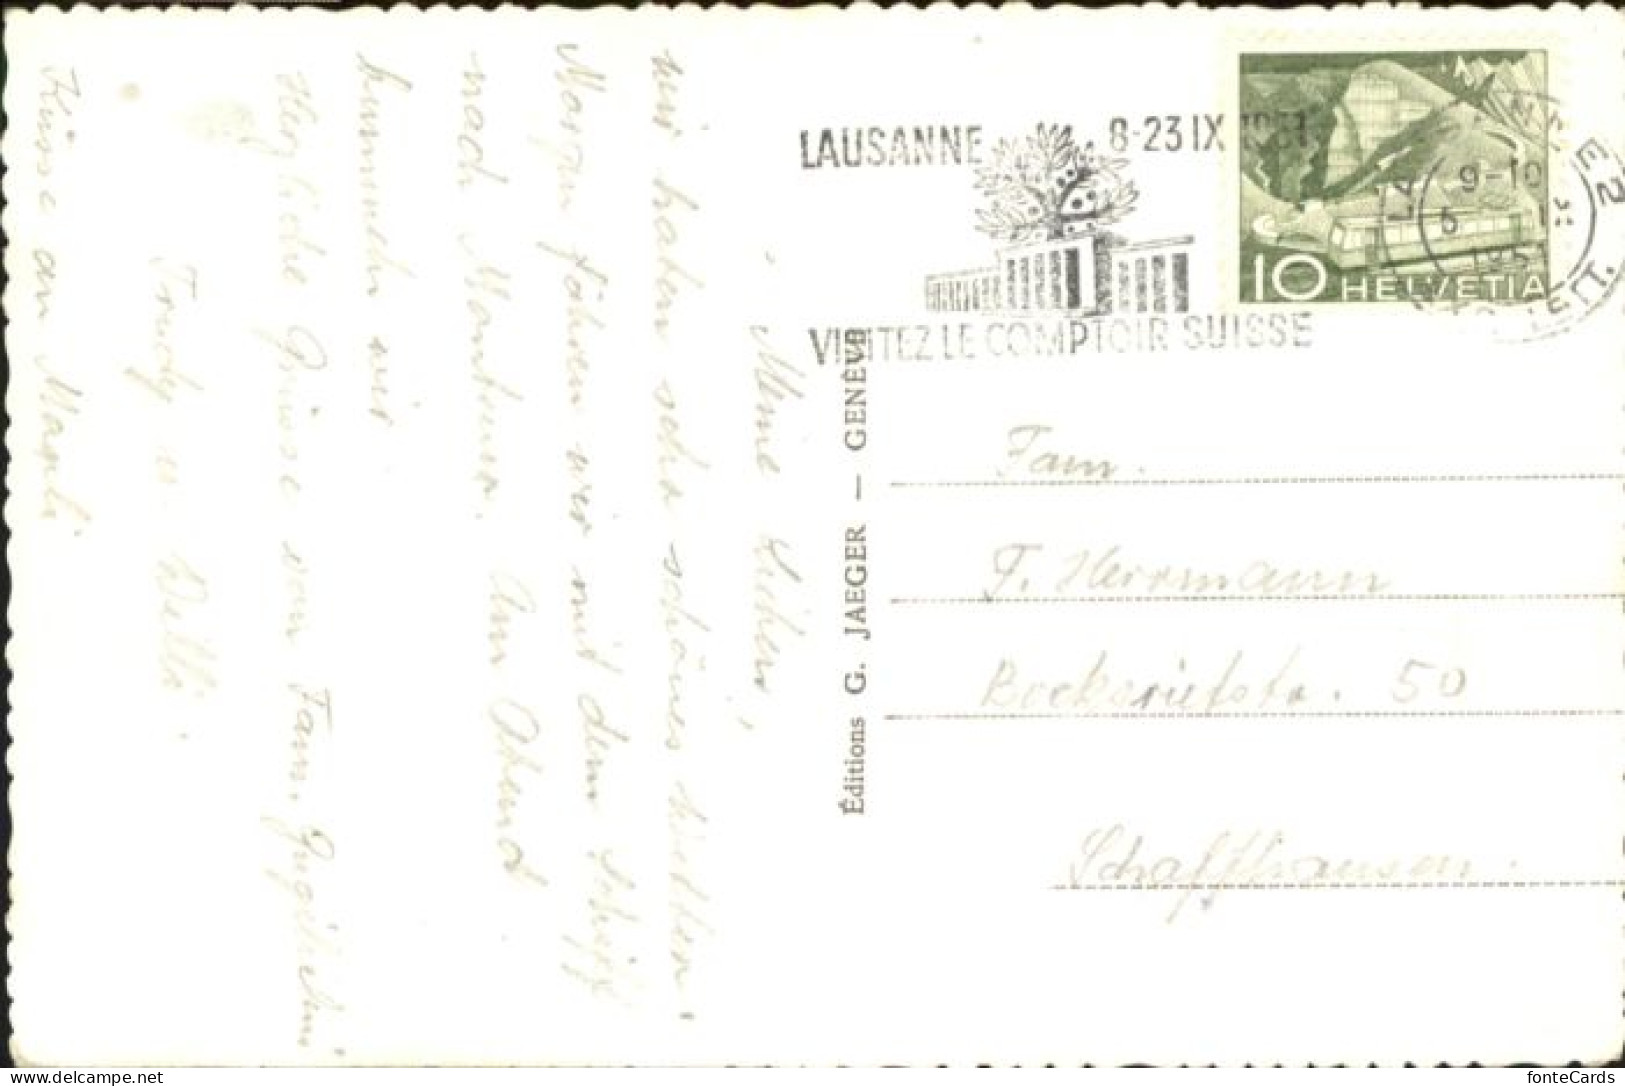 LAUSANNE 8-23 IX 1951
VISITEZ LE COMPTOIR SUISSE
9-10
1951
10 HELVETIA
Éditions G. JAEGER — GENÈVE
Fam.
F. Herrmann
50
Schaffhausen.
Meine Lieben,
wir haben sehr schönes Wetter.
Morgen fahren wir mit dem Schiff
nach Montreux. Am Abend
kummeln wir
Herzliche Grüsse von Fam.
Trudy u. Willi.
Küsse an
fonteCards
delcampe.net